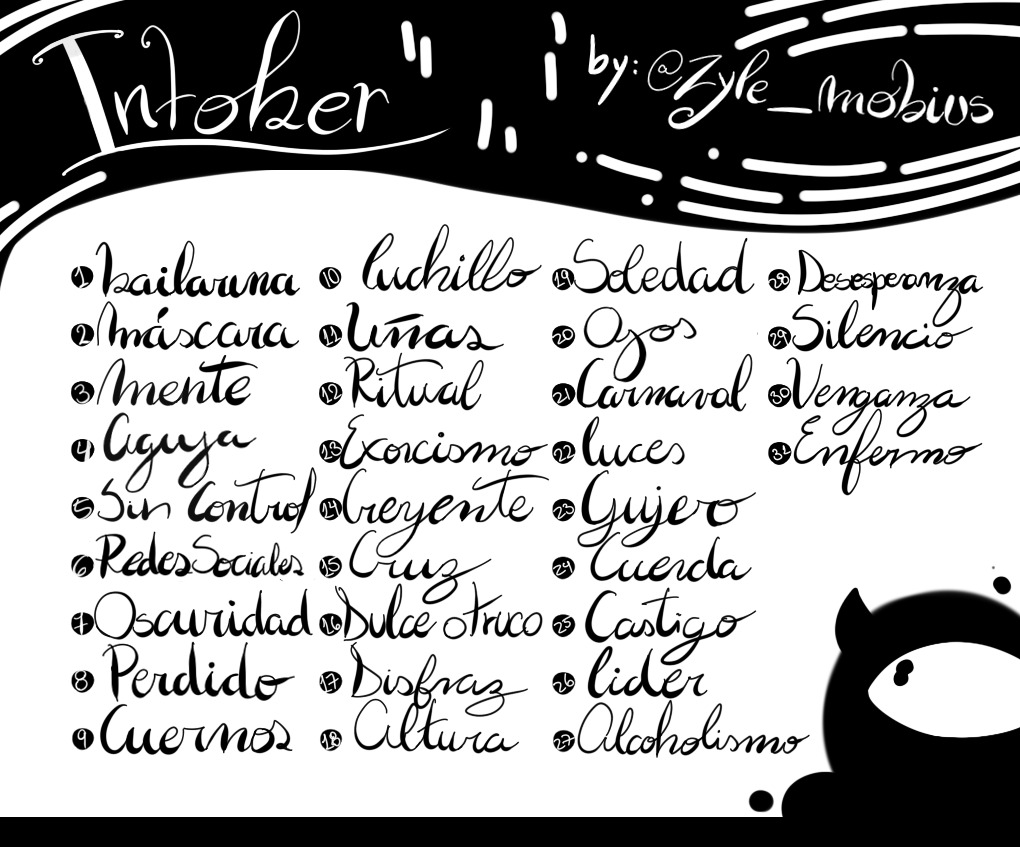 Intober
by: @Zyle_mobius
1 bailarina
2 máscara
3 mente
4 aguja
5 Sin Control
6 Redes Sociales
7 Oscuridad
8 Perdido
9 Cuernos
10 Cuchillo
11 Uñas
12 Ritual
13 Exorcismo
14 Creyente
15 Cruz
16 Dulce o Truco
17 Disfraz
18 Altura
19 Soledad
20 Ojos
21 Carnaval
22 luces
23 Gujero
24 Cuerda
25 Castigo
26 lider
27 Alcoholismo
28 Desesperanza
29 Silencio
30 Venganza
31 Enfermo